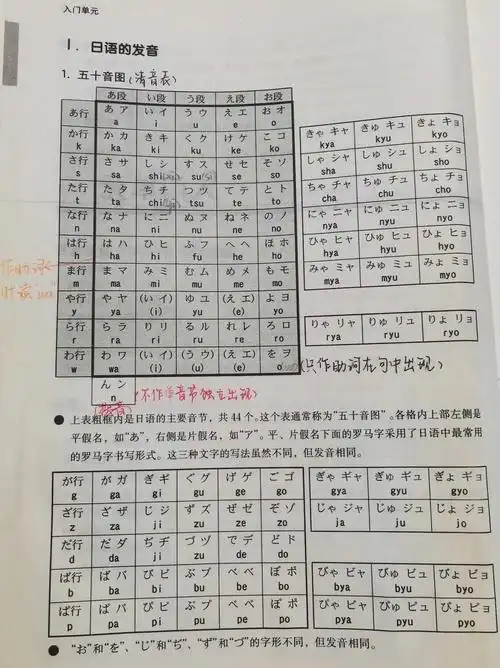 入门单元
1. 日语的发音
1. 五十音图(清音表)
あ段 い段 う段 え段 お段
あ行 あ ア い イ う ウ え エ お オ
a i u e o
か行 か カ き キ く ク け ケ こ コ きゃ キャ きゅ キュ きょ キョ
k ka ki ku ke ko kya kyu kyo
さ行 さ サ し シ す ス せ セ そ ソ しゃ シャ しゅ シュ しょ ショ
s sa shi su se so sha shu sho
た行 た タ ち チ つ ツ て テ と ト ちゃ チャ ちゅ チュ ちょ チョ
t ta chi tsu te to cha chu cho
な行 な ナ に ニ ぬ ヌ ね ネ の ノ にゃ ニャ にゅ ニュ にょ ニョ
n na ni nu ne no nya nyu nyo
は行 は ハ ひ ヒ ふ フ へ ヘ ほ ホ ひゃ ヒャ ひゅ ヒュ ひょ ヒョ
h ha hi fu he ho hya hyu hyo
作助词
ま行 ま マ み ミ む ム め メ も モ みゃ ミャ みゅ ミュ みょ ミョ
m ma mi mu me mo mya myu myo
や行 や ヤ (い イ) ゆ ユ (え エ) よ ヨ
y ya (i) yu (e) yo
ら行 ら ラ り リ る ル れ レ ろ ロ りゃ リャ りゅ リュ りょ リョ
r ra ri ru re ro rya ryu ryo
わ行 わ ワ (い イ) (う ウ) (え エ) を ヲ
w wa (i) (u) (e) o (只作助词在句中出现)
ん ン
n (不作单音节独立出现)
(拨音)
● 上表粗框内是日语的主要音节,共 44 个。这个表通常称为“五十音图”。各格内上部左侧是
平假名,如“あ”,右侧是片假名,如“ア”。平、片假名下面的罗马字采用了日语中最常用
的罗马字书写形式。这三种文字的写法虽然不同,但发音相同。
が行 が ガ ぎ ギ ぐ グ げ ゲ ご ゴ ぎゃ ギャ ぎゅ ギュ ぎょ ギョ
g ga gi gu ge go gya gyu gyo
ざ行 ざ ザ じ ジ ず ズ ぜ ゼ ぞ ゾ じゃ ジャ じゅ ジュ じょ ジョ
z za ji zu ze zo ja ju jo
だ行 だ ダ ぢ ヂ づ ヅ で デ ど ド
d da ji zu de do
ば行 ば バ び ビ ぶ ブ べ ベ ぼ ボ びゃ ビャ びゅ ビュ びょ ビョ
b ba bi bu be bo bya byu byo
ぱ行 ぱ パ ぴ ピ ぷ プ ぺ ペ ぽ ポ ぴゃ ピャ ぴゅ ピュ ぴょ ピョ
p pa pi pu pe po pya pyu pyo
● “お”和“を”、“じ”和“ぢ”、“ず”和“づ”的字形不同,但发音相同。